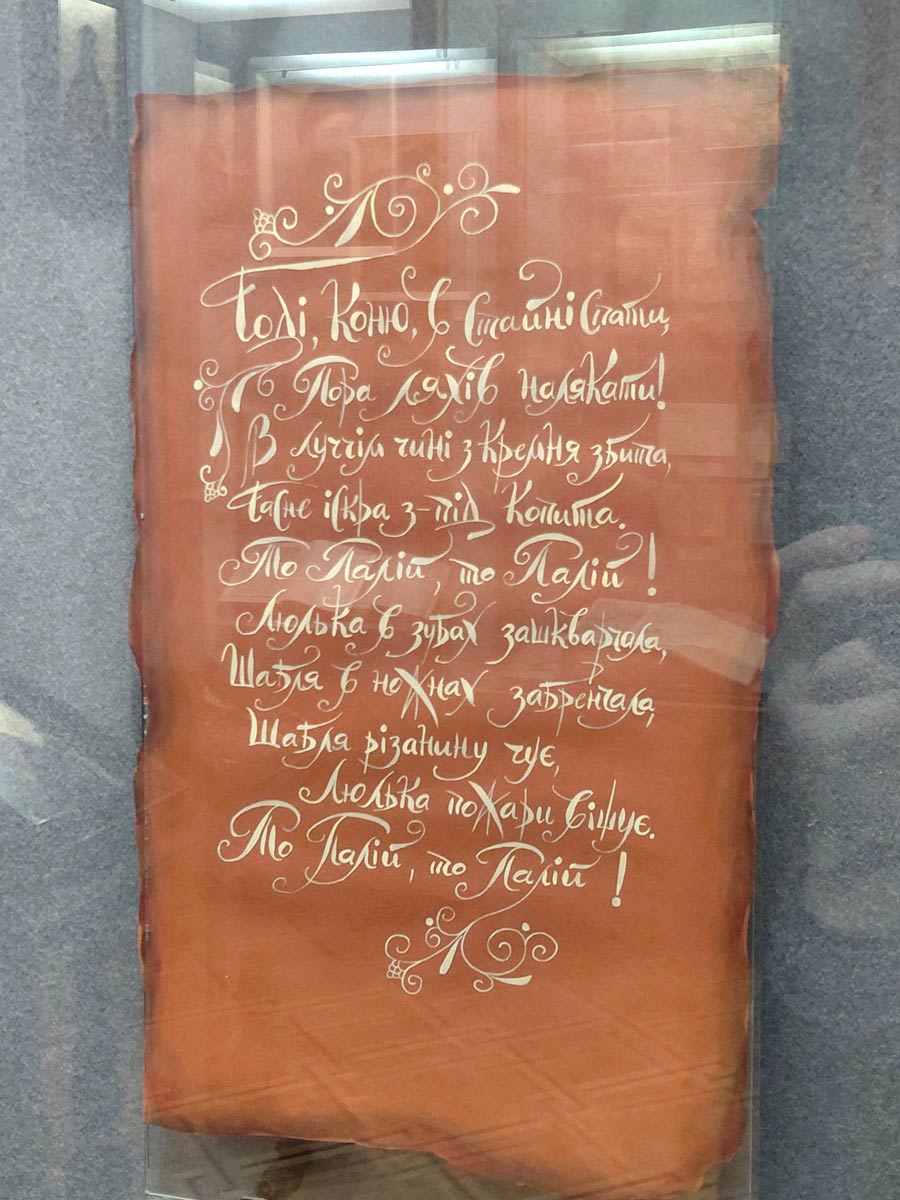 Годі, Коню, в Стайні Спати,
Пора Ляхів налякати!
В луччім чині з Кремня збита,
Гасне іскра з-під Копита.
То Палій, то Палій!
Люлька в зубах зашкварчала,
Шабля в ножнах забренчала,
Шабля різанину чує,
Люлька пожари віщує.
То Палій, то Палій!